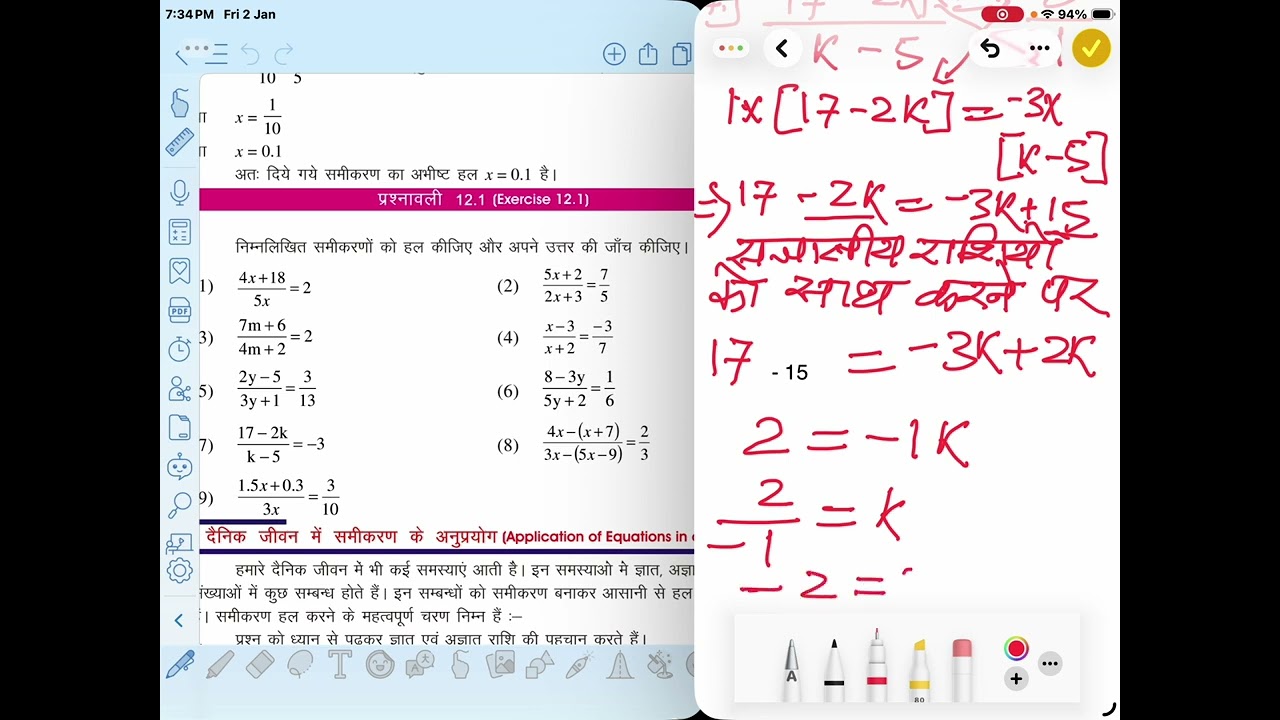 7:34 PM Fri 2 Jan
94%
10 5
x = 1/10
x = 0.1
अतः दिये गये समीकरण का अभीष्ट हल x = 0.1 है।
प्रश्नावली 12.1 (Exercise 12.1)
निम्नलिखित समीकरणों को हल कीजिए और अपने उत्तर की जाँच कीजिए।
1) (4x+18)/5x = 2
(2) (5x+2)/(2x+3) = 7/5
3) (7m+6)/(4m+2) = 2
(4) (x-3)/(x+2) = -3/7
5) (2y-5)/(3y+1) = 3/13
(6) (8-3y)/(5y+2) = 1/6
7) (17-2k)/(k-5) = -3
(8) (4x-(x+7))/(3x-(5x-9)) = 2/3
9) (1.5x+0.3)/3x = 3/10
दैनिक जीवन में समीकरण के अनुप्रयोग (Application of Equations in
हमारे दैनिक जीवन में भी कई समस्याएं आती है। इन समस्याओ मे ज्ञात,
में कुछ सम्बन्ध होते हैं। इन सम्बन्धों को समीकरण बनाकर आसानी से हल
समीकरण हल करने के महत्वपूर्ण चरण निम्न हैं :–
प्रश्न को ध्यान से पढकर ज्ञात एवं अज्ञात राशि की पहचान करते हैं।
K - 5
1x [17 - 2K] = -3x
[K - 5]
⇒ 17 - 2K = -3K + 15
सजातीय राशियों
को साथ करने पर
17 - 15 = -3K + 2K
2 = -1K
2/-1 = K
- 2 =
A
80